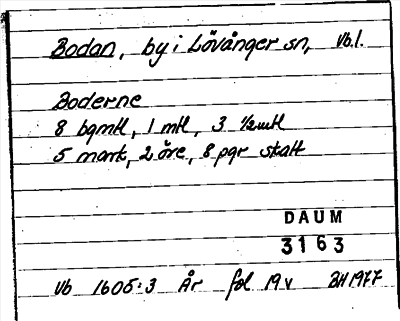 Bodan, by i Lövånger sn, Vb.l.
Boderne
8 bgmtl, 1 mtl, 3 ½mtl
5 mark, 2 öre, 8 pgr skatt
DAUM
3163
Vb 1605:3 År fol 19v BH 1977